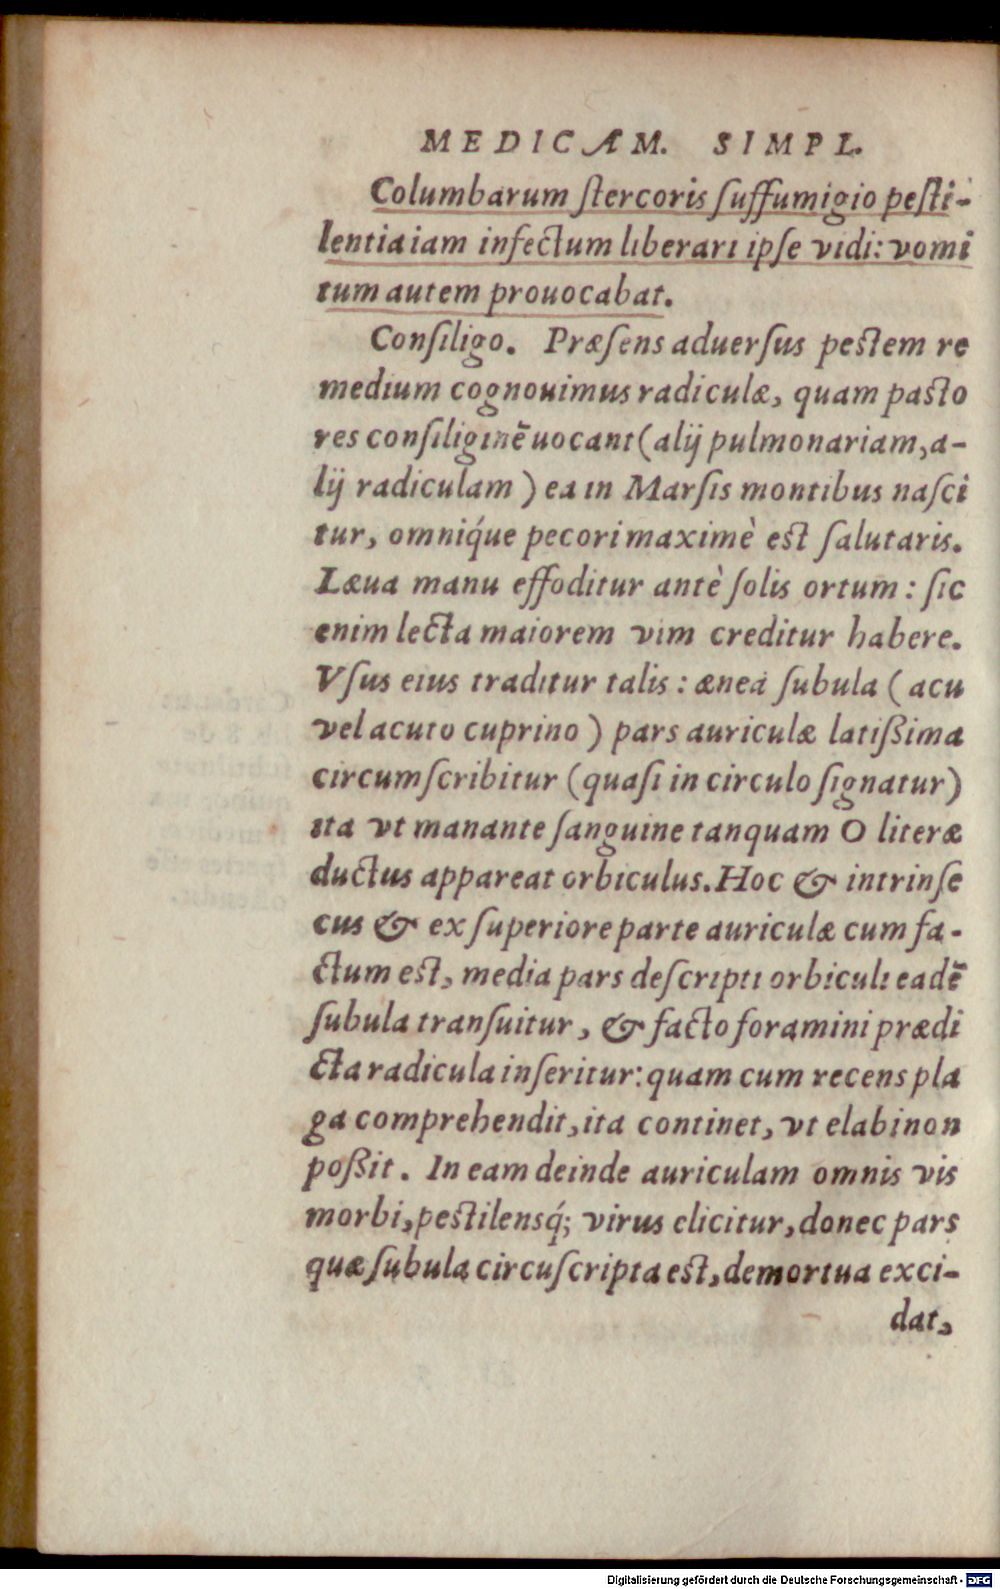 MEDICAM. SIMPL.
Columbarum stercoris suffumigio pesti-
lentia iam infectum liberari ipse vidi: vomi
tum autem prouocabat.
Consiligo. Præsens aduersus pestem re
medium cognouimus radiculæ, quam pasto
res consiliginē uocant (alij pulmonariam, a-
lij radiculam) ea in Marsis montibus nasci
tur, omniq́ue pecori maximè est salutaris.
Læua manu effoditur antè solis ortum: sic
enim lecta maiorem vim creditur habere.
Vsus eius traditur talis: ænea subula (acu
vel acuto cuprino) pars auriculæ latißima
circumscribitur (quasi in circulo signatur)
ita vt manante sanguine tanquam O literæ
ductus appareat orbiculus. Hoc & intrinse
cus & ex superiore parte auriculæ cum fa-
ctum est, media pars descripti orbiculi eadē
subula transuitur, & facto foramini prædi
cta radicula inseritur: quam cum recens pla
ga comprehendit, ita continet, vt elabi non
poßit. In eam deinde auriculam omnis vis
morbi, pestilensq́; virus elicitur, donec pars
quæ subula circuscripta est, demortua exci-
dat,
Digitalisierung gefördert durch die Deutsche Forschungsgemeinschaft - DFG